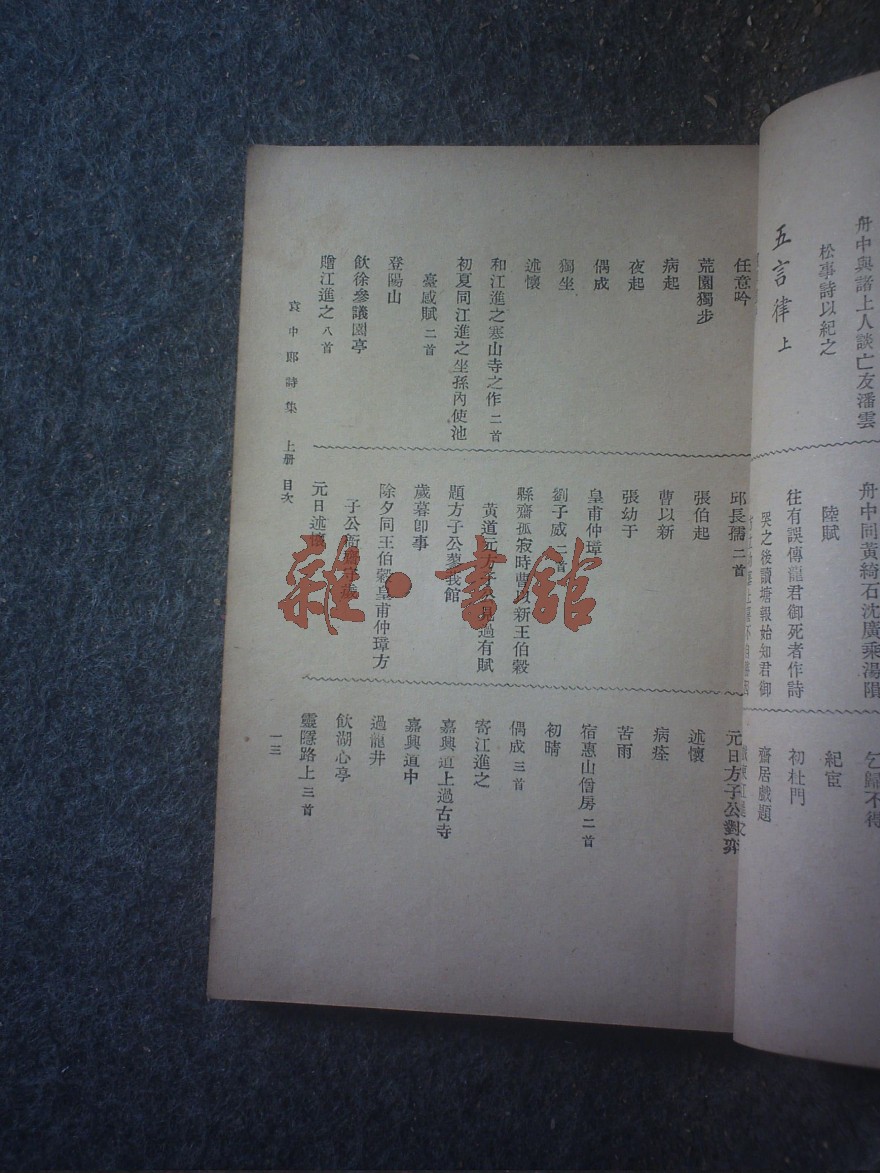 舟中與諸上人談亡友潘雲
松事詩以紀之
五言律 上
舟中同黃綺石沈廣乘湯隕
陸賦
往有誤傳龍君御死者作詩
哭之後讀塘報始知君御
乞歸不得
紀宦
初杜門
齋居戲題
任意吟
荒園獨步
病起
夜起
偶成
獨坐
述懷
和江進之寒山寺之作 二首
初夏同江進之坐孫內使池
臺感賦 二首
登陽山
飲徐參議園亭
贈江進之 八首
邱長孺 二首
張伯起
曹以新
張幼于
皇甫仲璋
劉子威 二首
縣齋孤寂時曹以新王伯穀
黃道元方子公見過有賦
題方子公蓼我館
歲暮卽事
除夕同王伯穀皇甫仲璋方
子公衙齋守歲
元日述懷
元日方子公對弈
述懷
病痊
苦雨
宿惠山僧房 二首
初晴
偶成 三首
寄江進之
嘉興道上過古寺
嘉興道中
過龍井
飲湖心亭
靈隱路上 三首
袁中郎詩集 上册 目次
一三
雜·書館